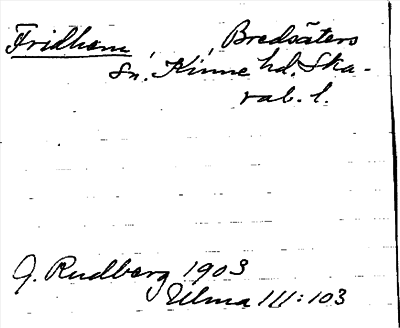 Fridhem, Bredsäters
sn. Kinne hd. Ska-
rab. l.
J. Rudberg 1903
Ulma III:103